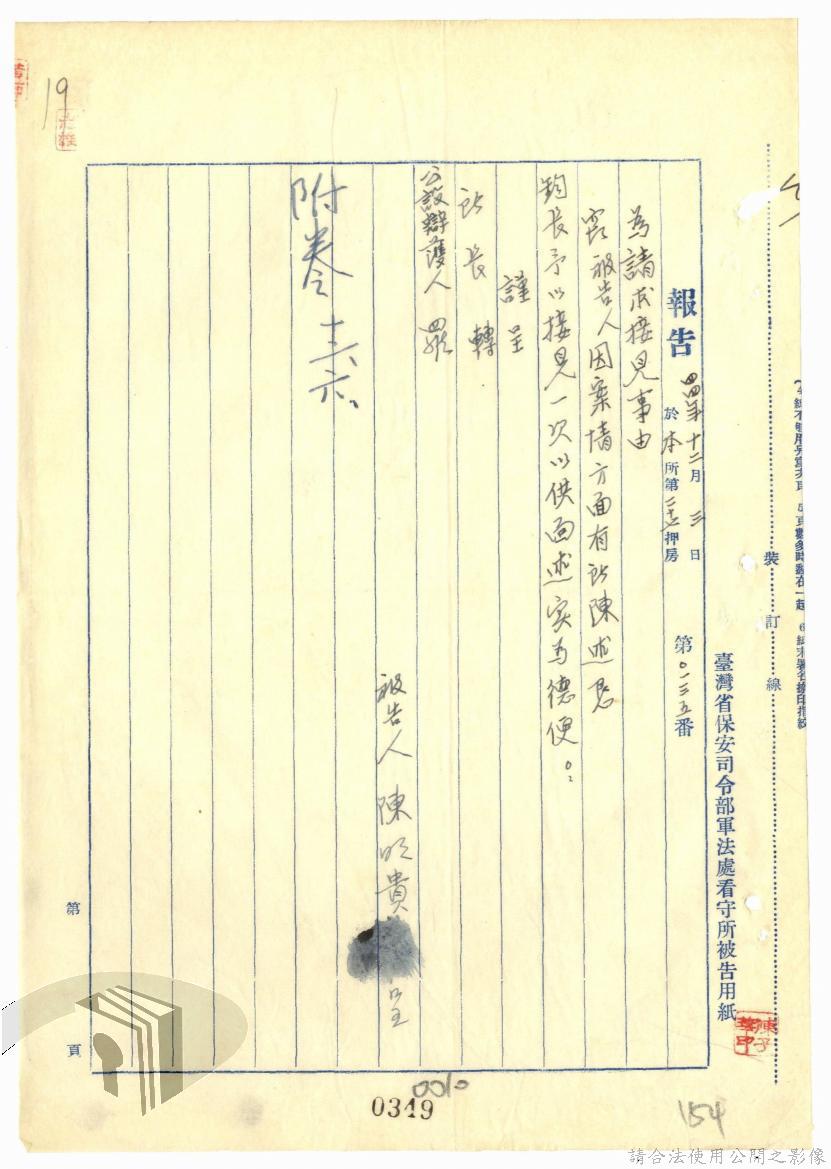 裝訂線
臺灣省保安司令部軍法處看守所被告用紙
報告
四四年十二月三日
於本所第二十七押房
第〇一三五番
為請求接見事由
竊被告人因案情方面有所陳述懇
鈞長予以接見一次以供面述實為德便。
謹呈
所長 轉
公設辯護人 羅
被告人 陳明貴 呈
附卷
第 頁
19
0010
0349
154
請合法使用公開之影像